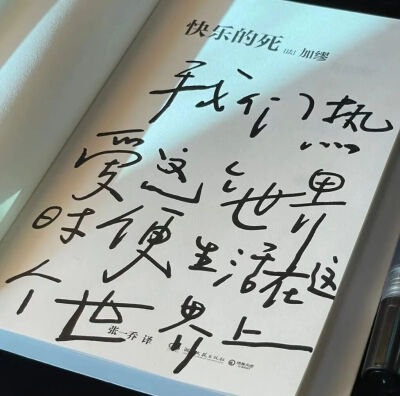 快乐的死 [法] 加缪
我们热
爱这个世界
时便生活在这
个世界上
张一乔 译